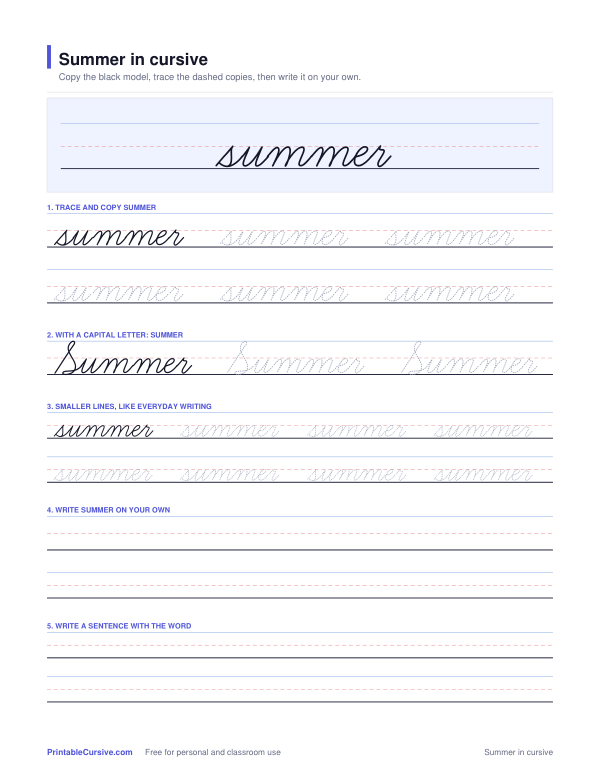 Summer in cursive
Copy the black model, trace the dashed copies, then write it on your own.
summer
1. TRACE AND COPY SUMMER
summer summer summer
summer summer summer
2. WITH A CAPITAL LETTER: SUMMER
Summer Summer Summer
3. SMALLER LINES, LIKE EVERYDAY WRITING
summer summer summer summer
summer summer summer summer
4. WRITE SUMMER ON YOUR OWN
5. WRITE A SENTENCE WITH THE WORD
PrintableCursive.com Free for personal and classroom use Summer in cursive